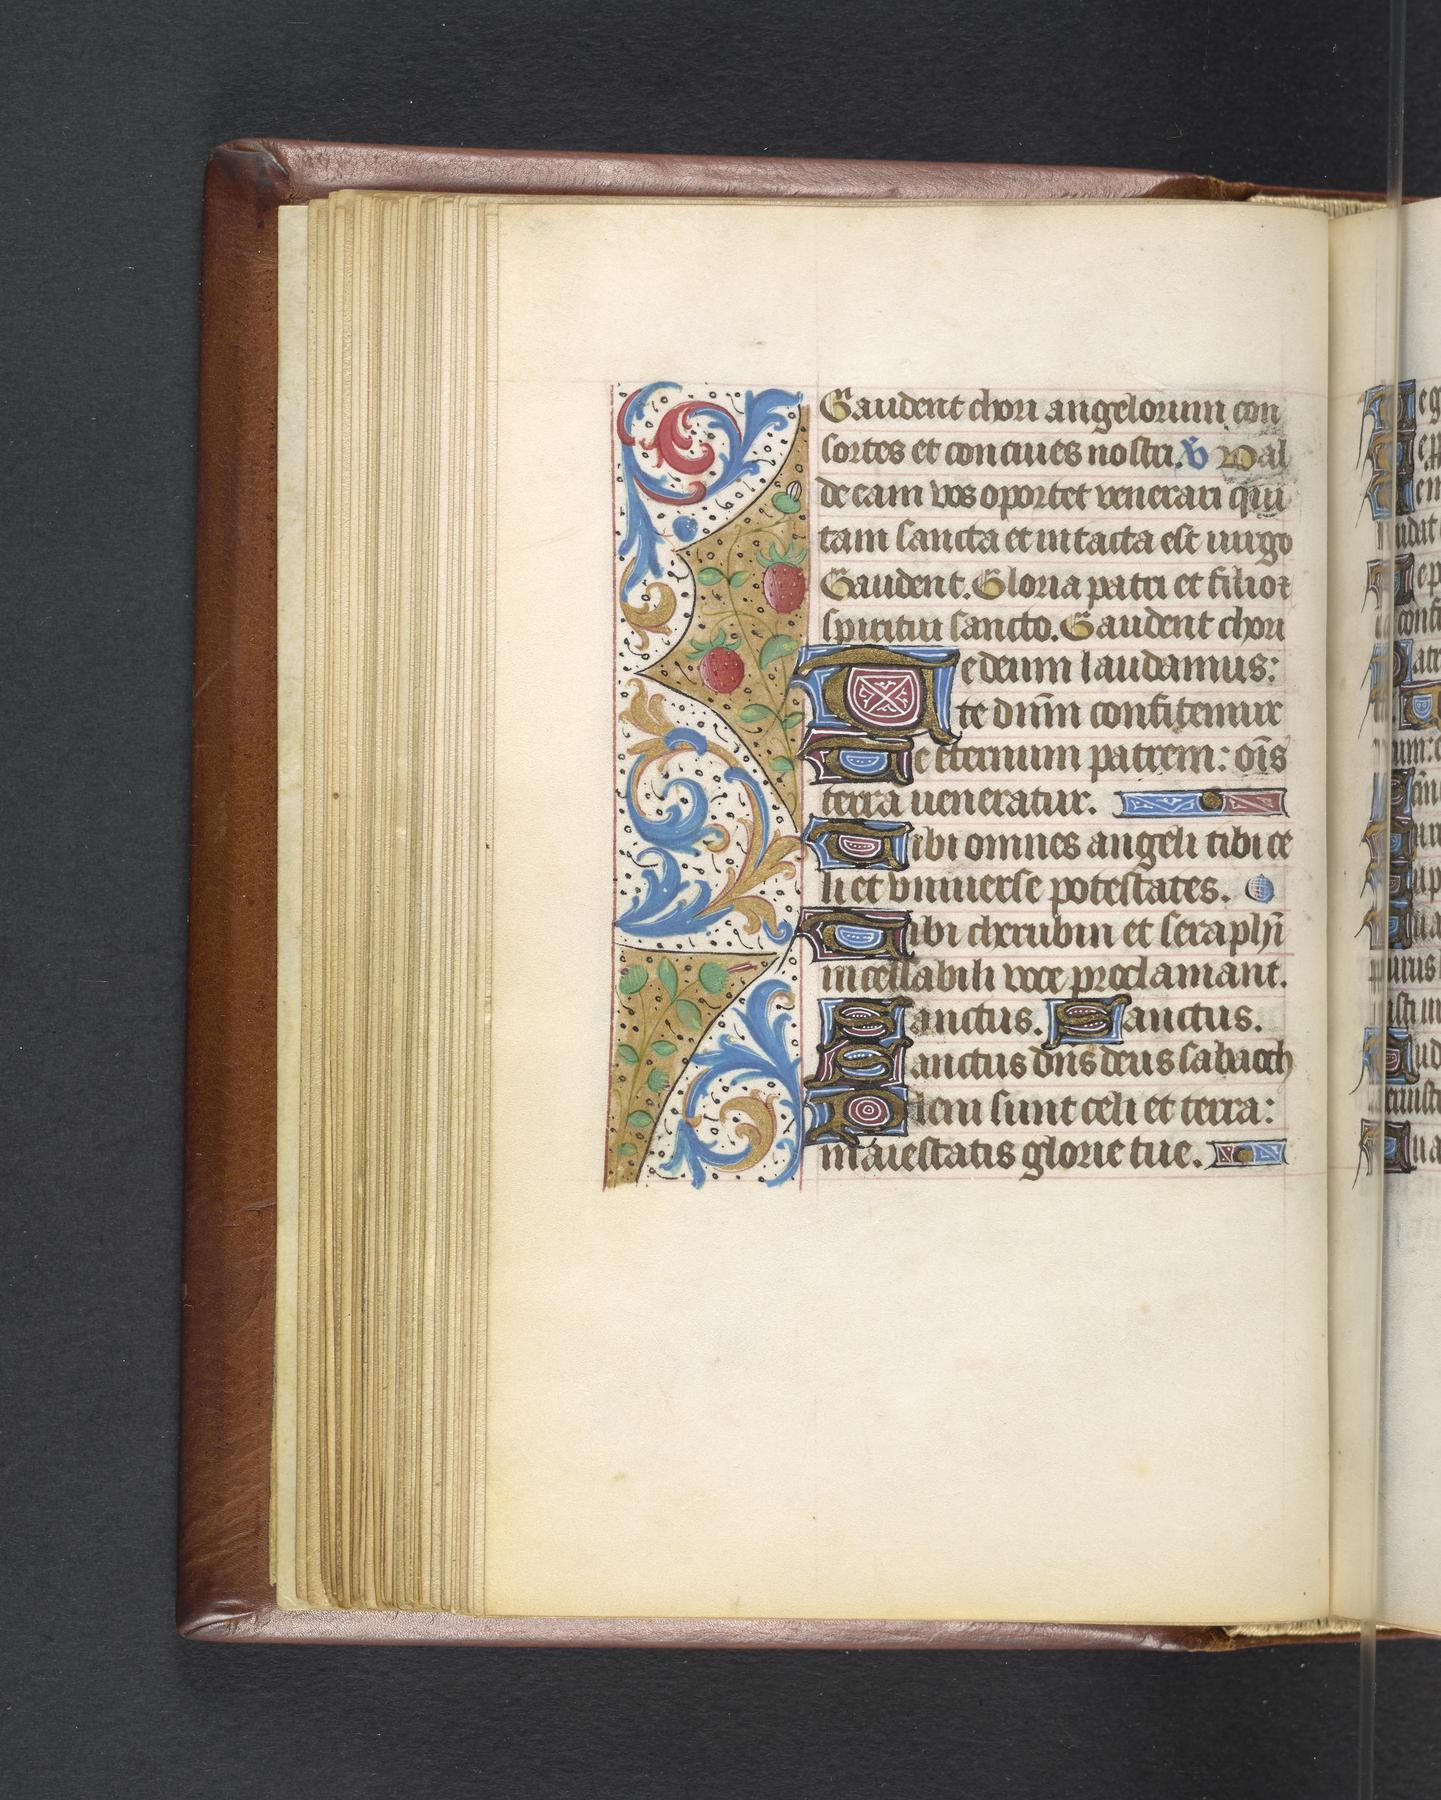 Gaudent chori angelorum con
sortes et conciues nostri. V Val
de eam vos oportet venerari qui
tam sancta et intacta est uirgo
Gaudent. Gloria patri et filio ⁊
spiritui sancto. Gaudent chori
Te deum laudamus:
te dūm confitemur
Te eternum patrem: oīs
terra ueneratur.
Tibi omnes angeli tibi ce
li et vniuerse potestates.
Tibi cherubin et seraphī
incessabili voce proclamant.
Sanctus. Sanctus.
Sanctus dn̄s deus sabaoth
Pleni sunt celi et terra:
maiestatis glorie tue.